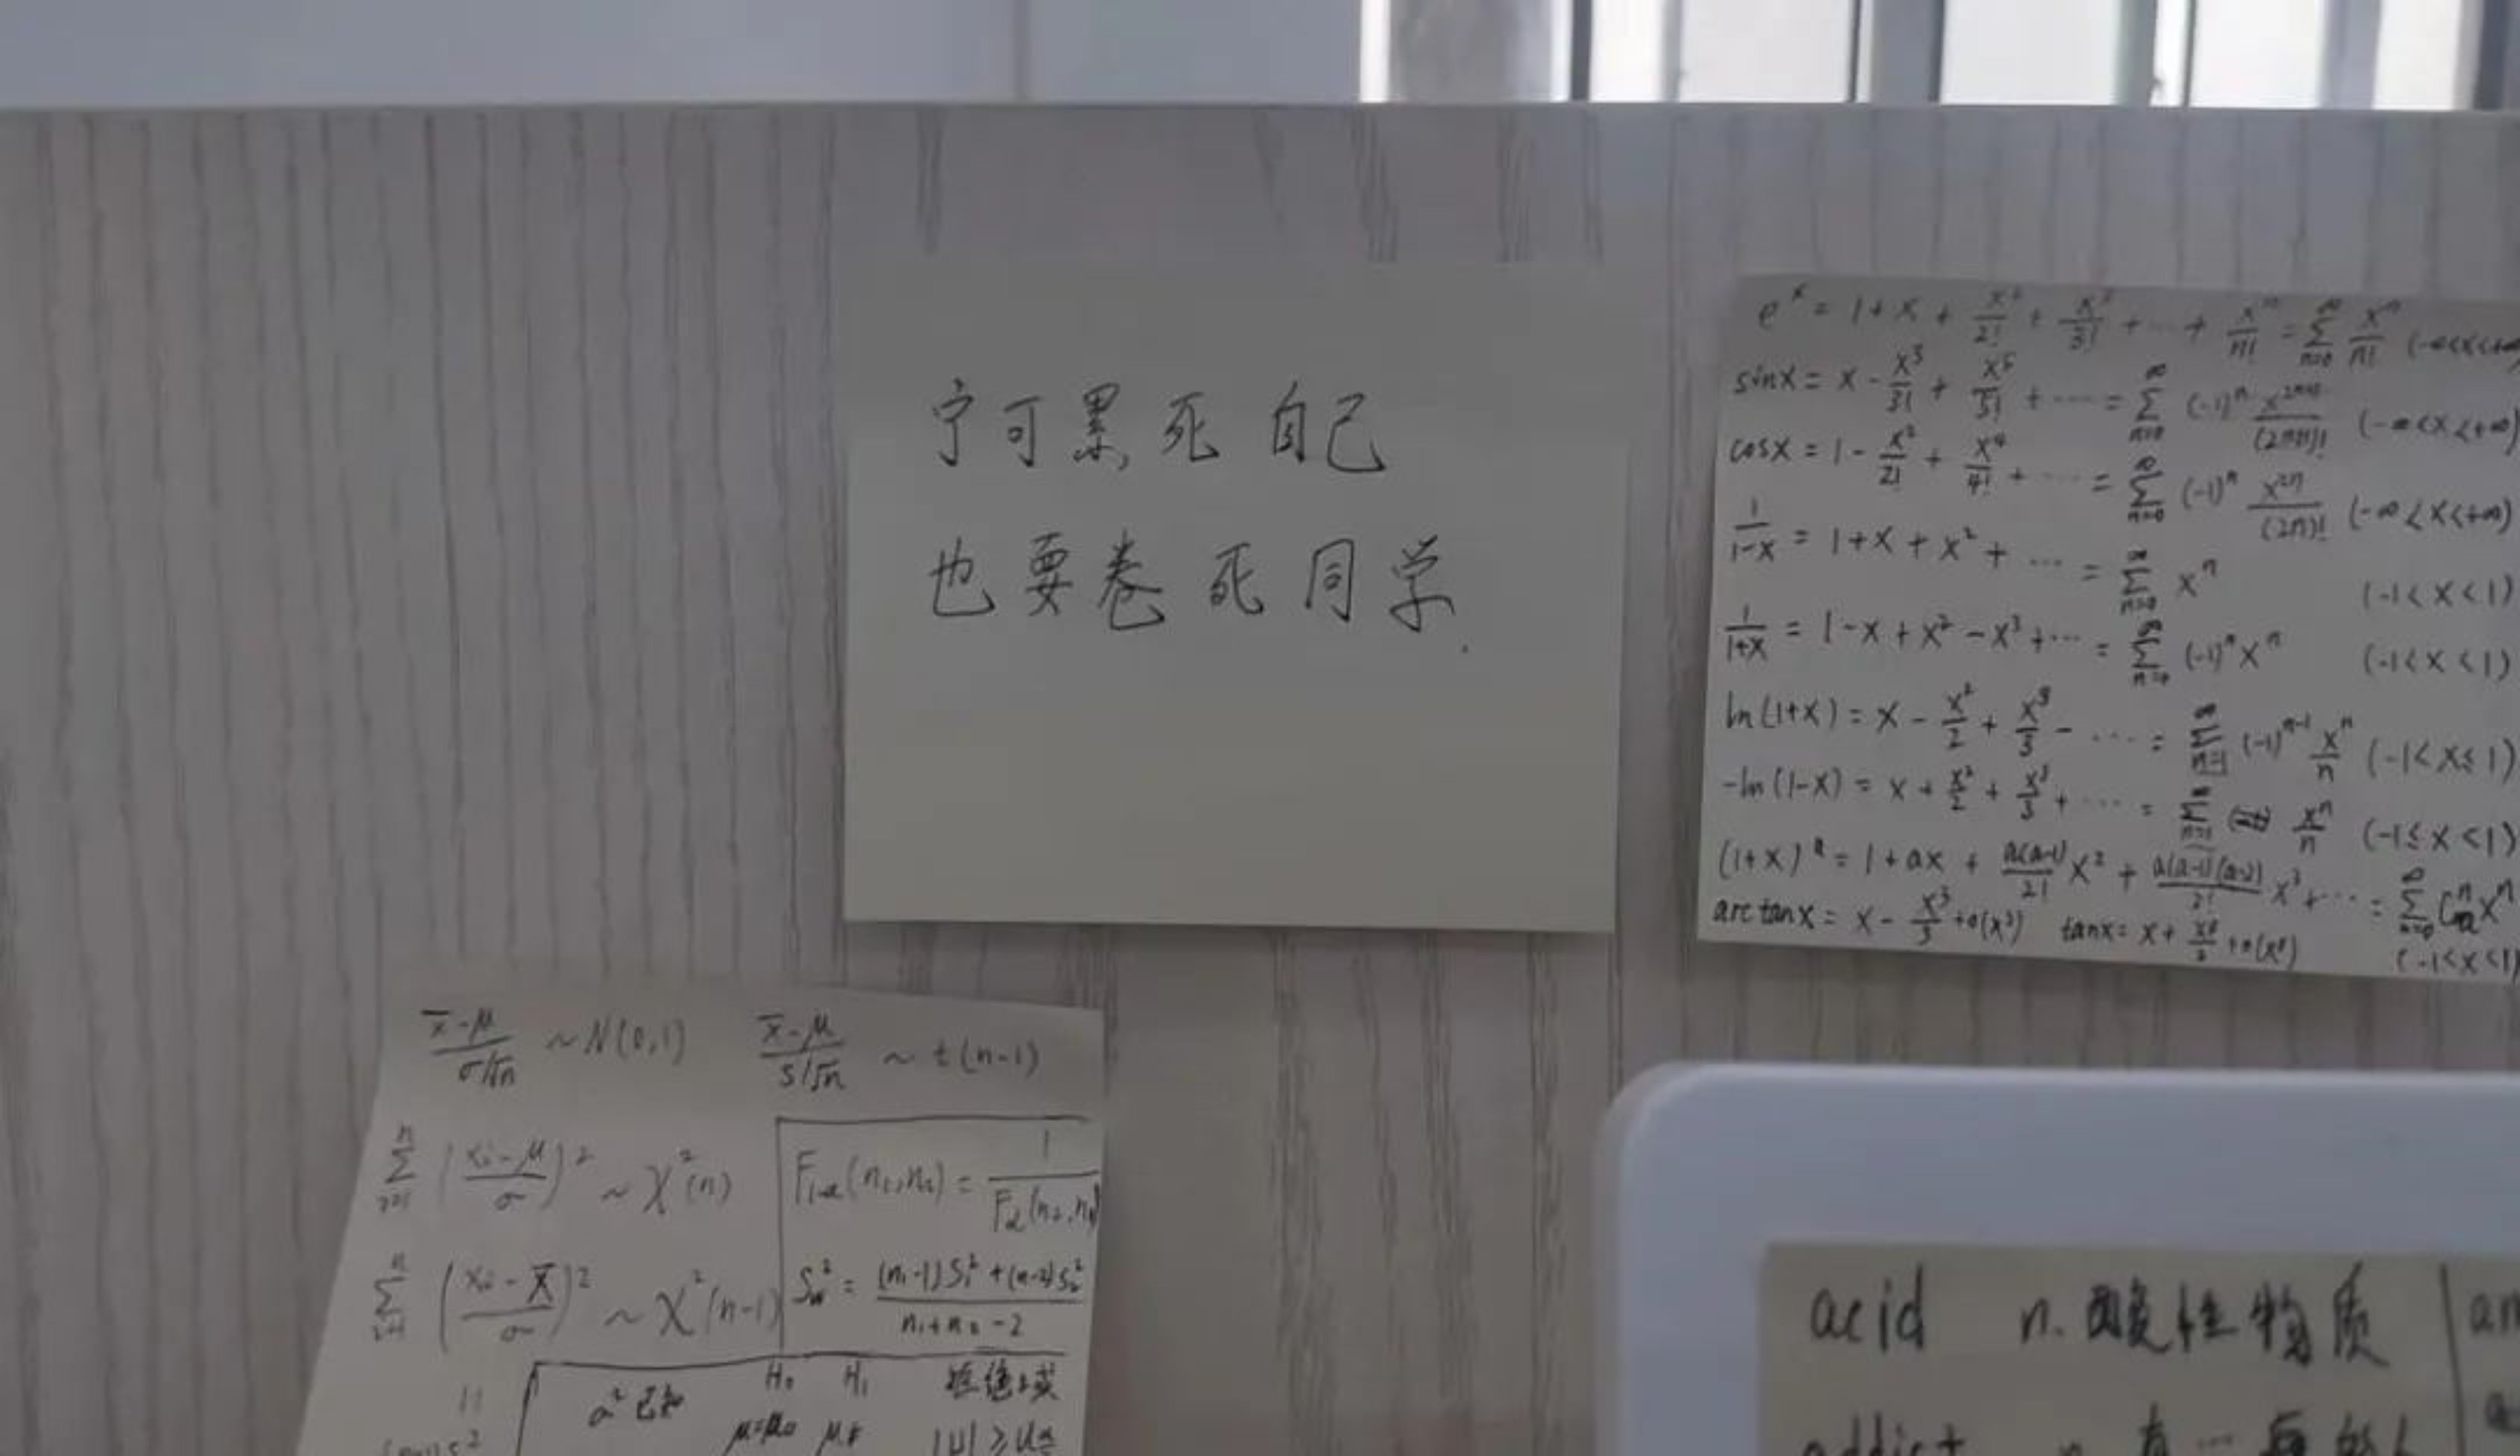 宁可累死自己
也要卷死同学.
e^x = 1+x+\frac{x^2}{2!}+\frac{x^3}{3!}+…+\frac{x^n}{n!}=\sum_{n=0}^{∞}\frac{x^n}{n!} (-∞<x<+∞
sinx = x-\frac{x^3}{3!}+\frac{x^5}{5!}+…=\sum_{n=0}^{∞}(-1)^n\frac{x^{2n+1}}{(2n+1)!} (-∞<x<+∞)
cosx = 1-\frac{x^2}{2!}+\frac{x^4}{4!}+…=\sum_{n=0}^{∞}(-1)^n\frac{x^{2n}}{(2n)!} (-∞<x<+∞)
\frac{1}{1-x} = 1+x+x^2+…=\sum_{n=0}^{∞}x^n (-1<x<1)
\frac{1}{1+x} = 1-x+x^2-x^3+…=\sum_{n=0}^{∞}(-1)^n x^n (-1<x<1)
ln(1+x) = x-\frac{x^2}{2}+\frac{x^3}{3}-…=\sum_{n=1}^{∞}(-1)^{n-1}\frac{x^n}{n} (-1<x≤1)
-ln(1-x) = x+\frac{x^2}{2}+\frac{x^3}{3}+…=\sum_{n=1}^{∞}\frac{x^n}{n} (-1≤x<1)
(1+x)^a = 1+ax+\frac{a(a-1)}{2!}x^2+\frac{a(a-1)(a-2)}{3!}x^3+…=\sum_{n=0}^{∞}C_a^n x^n
arctanx = x-\frac{x^3}{3}+o(x^3) tanx = x+\frac{x^3}{3}+o(x^3) (-1<x<1)
\frac{\overline{x}-μ}{σ/√n} ~ N(0,1) \frac{\overline{x}-μ}{S/√n} ~ t(n-1)
\sum_{i=1}^{n}(\frac{x_i-μ}{σ})^2 ~ χ^2(n)
\sum_{i=1}^{n}(\frac{x_i-\overline{X}}{σ})^2 ~ χ^2(n-1)
F_{1-α}(n_1,n_2) = \frac{1}{F_α(n_2,n_1)}
S_w^2 = \frac{(n_1-1)S_1^2+(n-2)S_2^2}{n_1+n_2-2}
H_0 H_1 拒绝域
σ^2已知 μ=μ_0
acid n. 酸性物质
addict